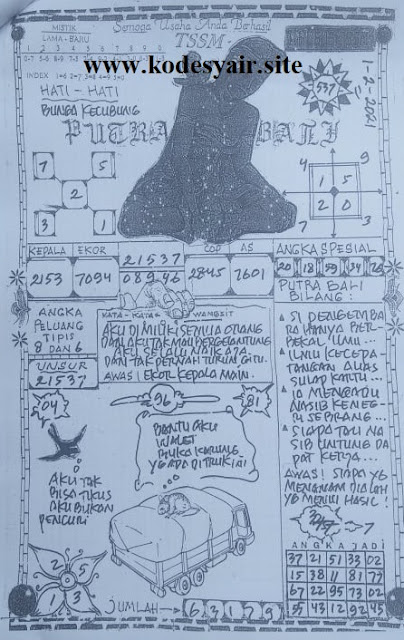 MISTIK
Semoga Usaha Anda Berhasil
LAMA - BARU
TSSM
1 2 3 4 5 6 7 8 9 0
www.kodesyair.site
INDEX
HATI - HATI
BUNGA KECUBUNG
537
1-2-2021
PUTRA BALI
7 5
2
3 1
4 9
1 5
2 0
7 3
KEPALA EKOR
2153 7094
21537
08946
COP AS
2845 7601
ANGKA SPESIAL
20 18 59 34 26
ANGKA
PELUANG
TIPIS
8 DAN 6
UNSUR
21537
KATA - KATA WANGSIT
AKU DI MILIKI SEMUA ORANG
DAN AKU TAK MAU BERGELANTUNG
AKU SELALU NAIK
DAN TAK PERNAH TURUN GITU.
AWAS! EKOR KEPALA MAIN.
PUTRA BALI
BILANG:
SI PENGEMBA
RA HANYA BER-
BEKAL ILMU...
ILMU KECEPA
TANGAN ALAS
SULAP KARTU...
IA MENGADU
NASIB KENEGE
RI SEBRANG...
SIAPA TAU NA
SIB UNTUNG DA
PAT KERJA...
AWAS! SIAPA YG
MENANAM DIALAH
YG MEMILIKI HASIL!
04
96
81
BANTU AKU
LIHAT
KARUNG
YG ADA DI TRUK IA!
AKU TAK
BISA TIKUS
AKU BUKAN
PENCURI
2 5
1 3
JUMLAH
6 3 1 7 9
7
ANGKA JADI
37 21 51 33 02
15 38 11 81 77
67 22 95 73 02
55 43 12 92 45